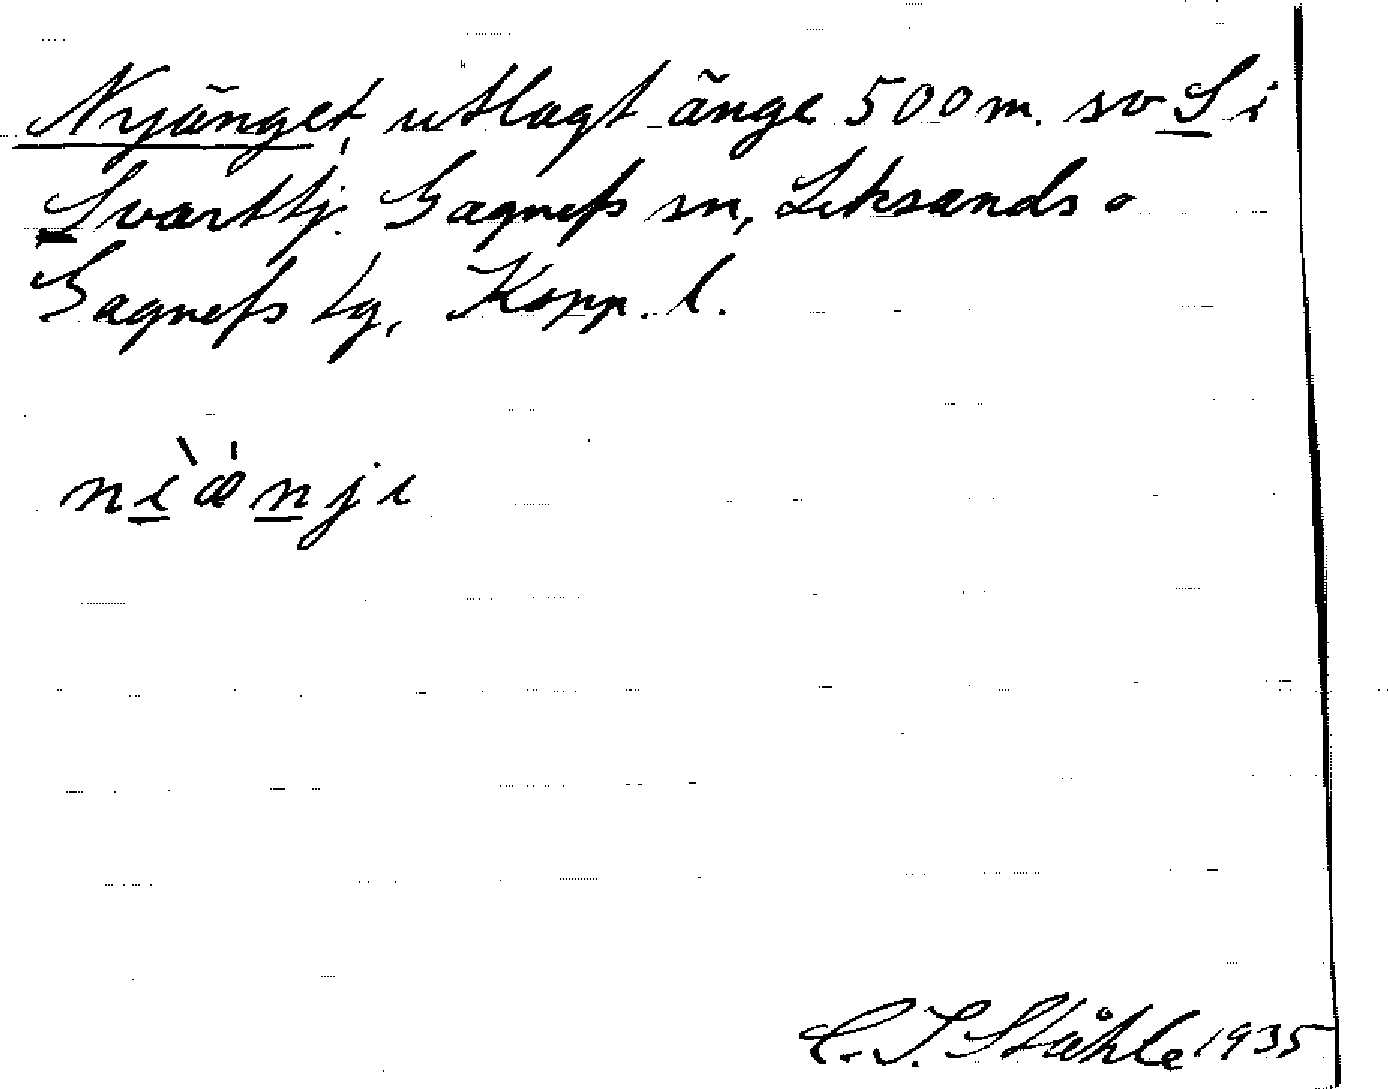 Nyänget, utlagt änge 500 m. sv S i
Svarttj. Gagnefs sn, Leksands o
Gagnefs tg, Kopp. l.
nìǽnji
C. I. Ståhle 1935